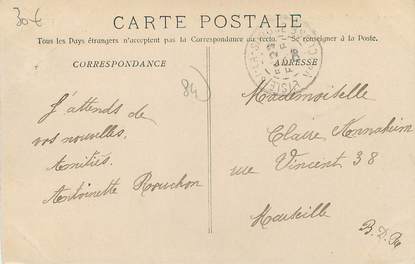 30€
CARTE POSTALE
Tous les Pays étrangers n'acceptent pas la Correspondance au recto. Se renseigner à la Poste.
CORRESPONDANCE
ADRESSE
84
J'attends de
vos nouvelles.
Amitiés.
Antoinette Rouchon
Mademoiselle
Claire
rue Vincent 38
Marseille
B.D.R